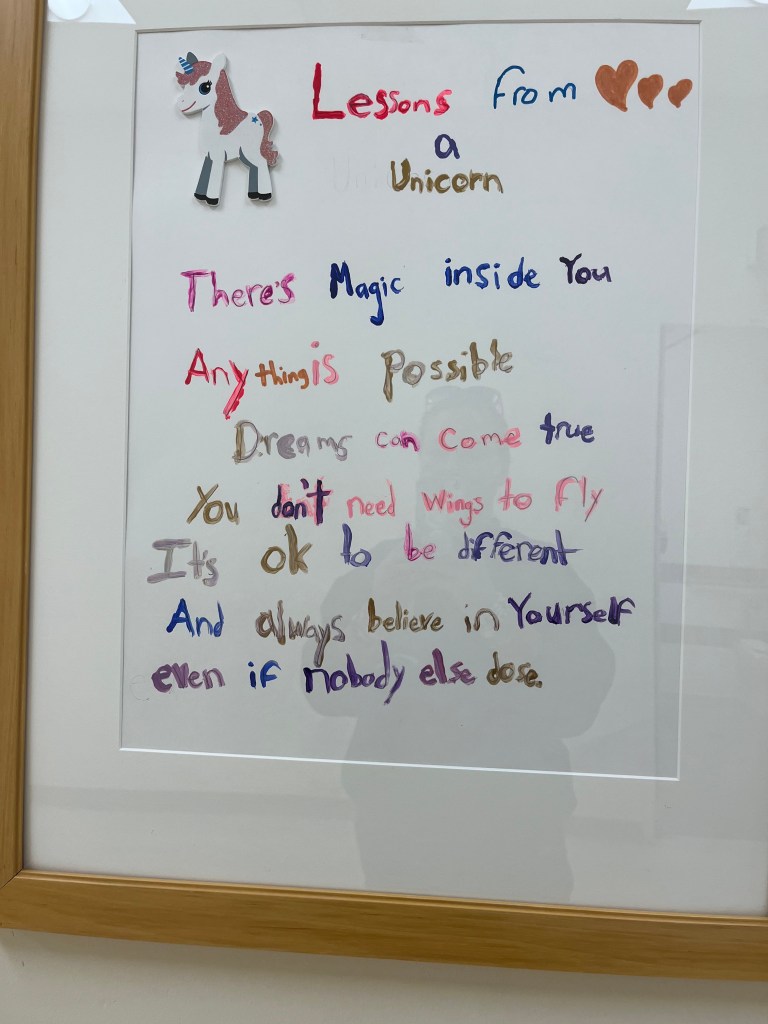 Lessons from
a
Unicorn
There's Magic inside You
Anything is possible
Dreams can come true
You don't need wings to fly
It's ok to be different
And always believe in Yourself
even if nobody else dose.